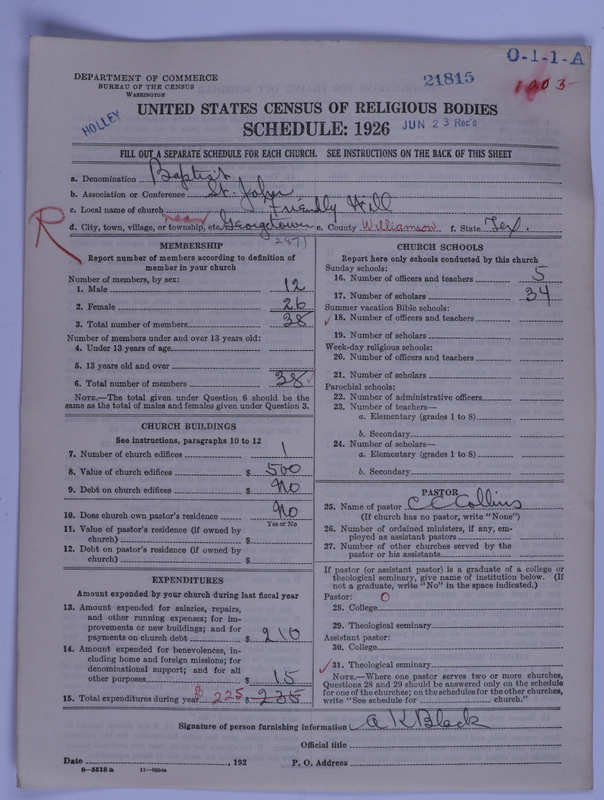 O-1-1-A
DEPARTMENT OF COMMERCE
BUREAU OF THE CENSUS
WASHINGTON
21815
1203
HOLLEY
UNITED STATES CENSUS OF RELIGIOUS BODIES
SCHEDULE: 1926
JUN 23 Rec'd
FILL OUT A SEPARATE SCHEDULE FOR EACH CHURCH. SEE INSTRUCTIONS ON THE BACK OF THIS SHEET
a. Denomination Baptist
b. Association or Conference St. John
c. Local name of church Friendly Will
d. City, town, village, or township, etc. near Georgetown e. County Williamson f. State Tex.
R
2871
MEMBERSHIP
Report number of members according to definition of
member in your church
Number of members, by sex:
1. Male 12
2. Female 26
3. Total number of members 38
Number of members under and over 13 years old:
4. Under 13 years of age
5. 13 years old and over
6. Total number of members 38
NOTE.—The total given under Question 6 should be the
same as the total of males and females given under Question 3.
CHURCH BUILDINGS
See instructions, paragraphs 10 to 12
7. Number of church edifices 1
8. Value of church edifices $ 500
9. Debt on church edifices $ No
10. Does church own pastor's residence No
Yes or No
11. Value of pastor's residence (if owned by
church) $
12. Debt on pastor's residence (if owned by
church) $
EXPENDITURES
Amount expended by your church during last fiscal year
13. Amount expended for salaries, repairs,
and other running expenses; for im-
provements or new buildings; and for
payments on church debt $ 210
14. Amount expended for benevolences, in-
cluding home and foreign missions; for
denominational support; and for all
other purposes $ 15
15. Total expenditures during year $ 225 $ 235
CHURCH SCHOOLS
Report here only schools conducted by this church
Sunday schools:
16. Number of officers and teachers 5
17. Number of scholars 34
Summer vacation Bible schools:
✓18. Number of officers and teachers
19. Number of scholars
Week-day religious schools:
20. Number of officers and teachers
21. Number of scholars
Parochial schools:
22. Number of administrative officers
23. Number of teachers—
a. Elementary (grades 1 to 8)
b. Secondary
24. Number of scholars—
a. Elementary (grades 1 to 8)
b. Secondary
PASTOR
25. Name of pastor C C Collins
(If church has no pastor, write "None")
26. Number of ordained ministers, if any, em-
ployed as assistant pastors
27. Number of other churches served by the
pastor or his assistants
If pastor (or assistant pastor) is a graduate of a college or
theological seminary, give name of institution below. (If
not a graduate, write "No" in the space indicated.)
Pastor: O
28. College
29. Theological seminary
Assistant pastor:
30. College
✓31. Theological seminary
NOTE.—Where one pastor serves two or more churches,
Questions 28 and 29 should be answered only on the schedule
for one of the churches; on the schedules for the other churches,
write "See schedule for church."
Signature of person furnishing information A K Black
Official title
Date , 192 P. O. Address
8-5518a 11-9554a